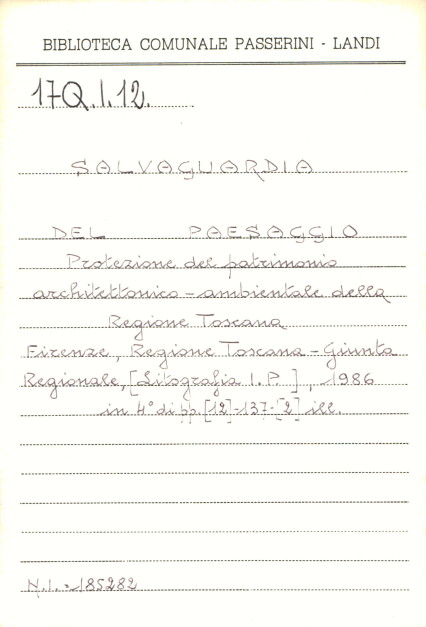 BIBLIOTECA COMUNALE PASSERINI - LANDI
17Q.I.12.
SALVAGUARDIA
DEL PAESAGGIO
Protezione del patrimonio
architettonico - ambientale della
Regione Toscana
Firenze, Regione Toscana - Giunta
Regionale, [Litografia I.P. ], 1986
in 4° di pp. [12]-137-[2] ill.
N.I. = 185282